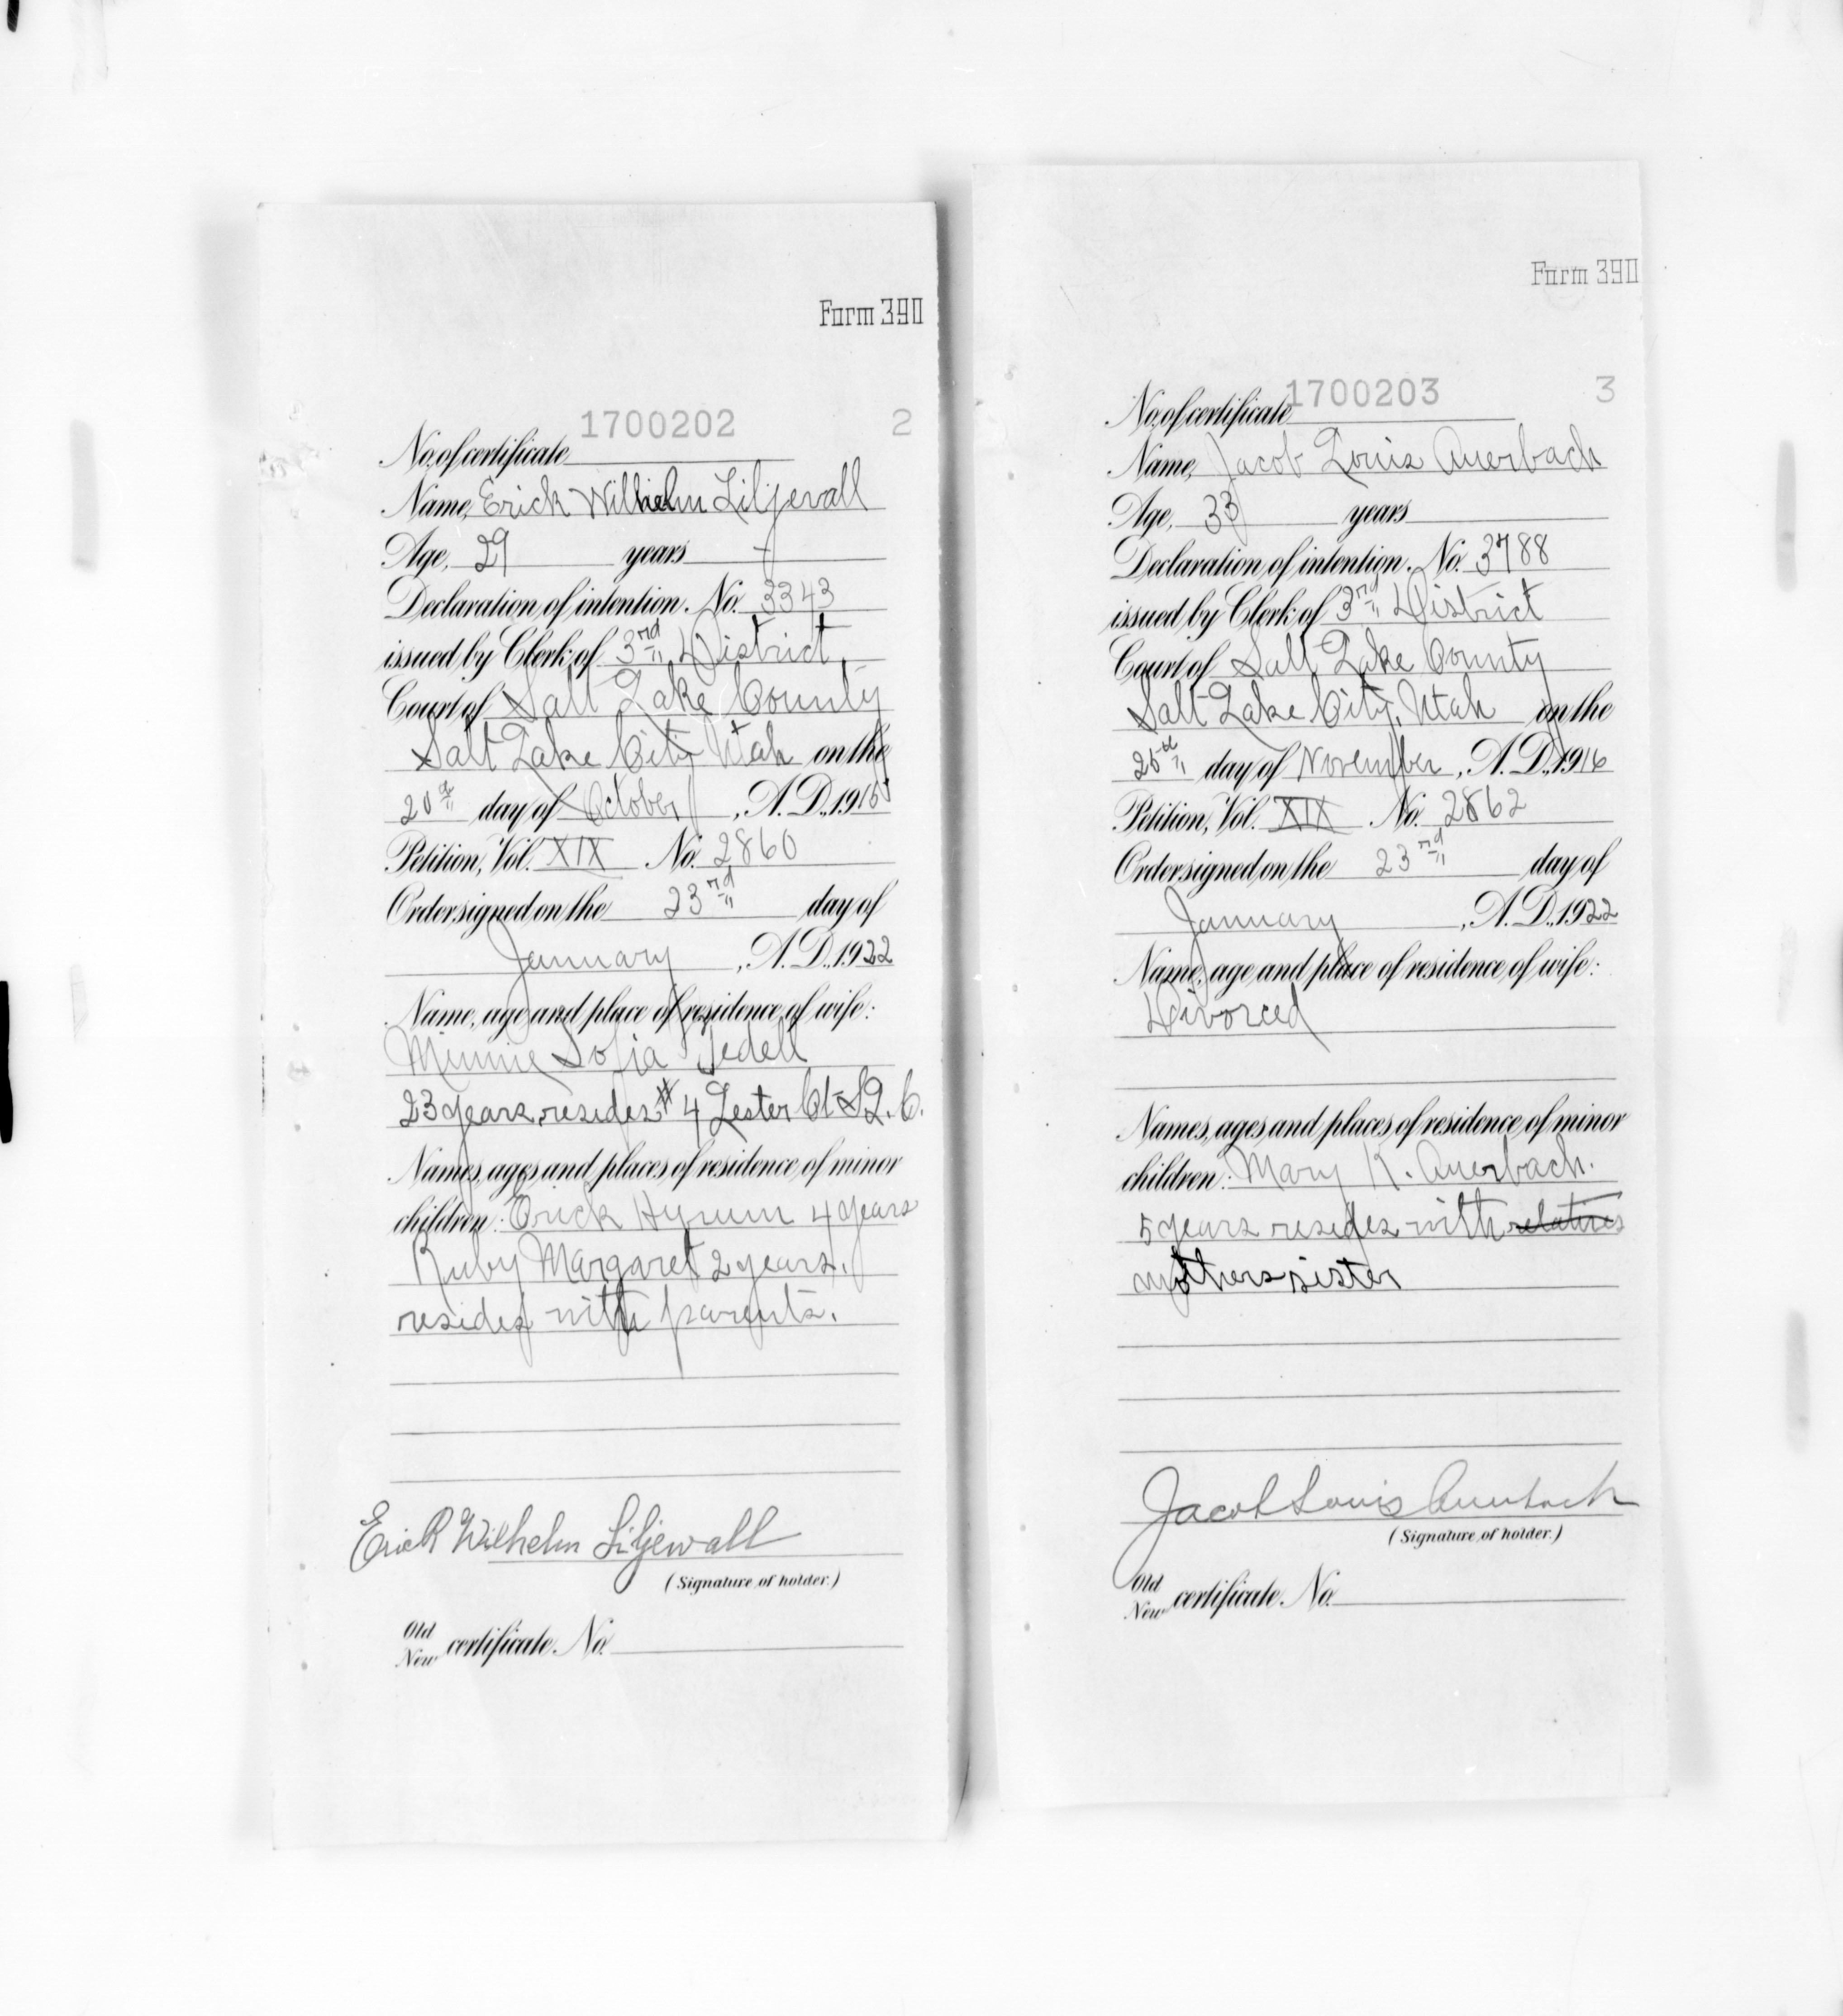 Form 390
1700202 2
No. of certificate
Name, Erick Wilhelm Liljevall
Age, 29 years -
Declaration of intention. No. 3343
issued by Clerk of 3rd District
Court of Salt Lake County
Salt Lake City Utah on the
day of October, A. D., 1915
Petition, Vol. XIX No. 2860
Order signed on the 23rd day of
January, A. D., 1922
Name, age and place of residence of wife:
Minnie Sofia
23 years, resides # 4 Lester Ct S. L. C.
Names, ages and places of residence of minor
children: Erick Hyrum 4 years
Ruby Margaret 2 years.
resides with parents.
Erick Wilhelm Liljewall
(Signature of holder.)
Old
New certificate No.
Form 390
1700203 3
No. of certificate
Name, Jacob Louis Auerbach
Age, 33 years
Declaration of intention. No. 3788
issued by Clerk of 3rd District
Court of Salt Lake County
Salt Lake City, Utah on the
25th day of November, A. D., 1916
Petition, Vol. XIX No. 2862
Order signed on the 23rd day of
January, A. D., 1922
Name, age and place of residence of wife:
Divorced
Names, ages and places of residence of minor
children: Mary K. Auerbach.
5 years resides with relatives
mothers sister
Jacob Louis Auerbach
(Signature of holder.)
Old
New certificate No.